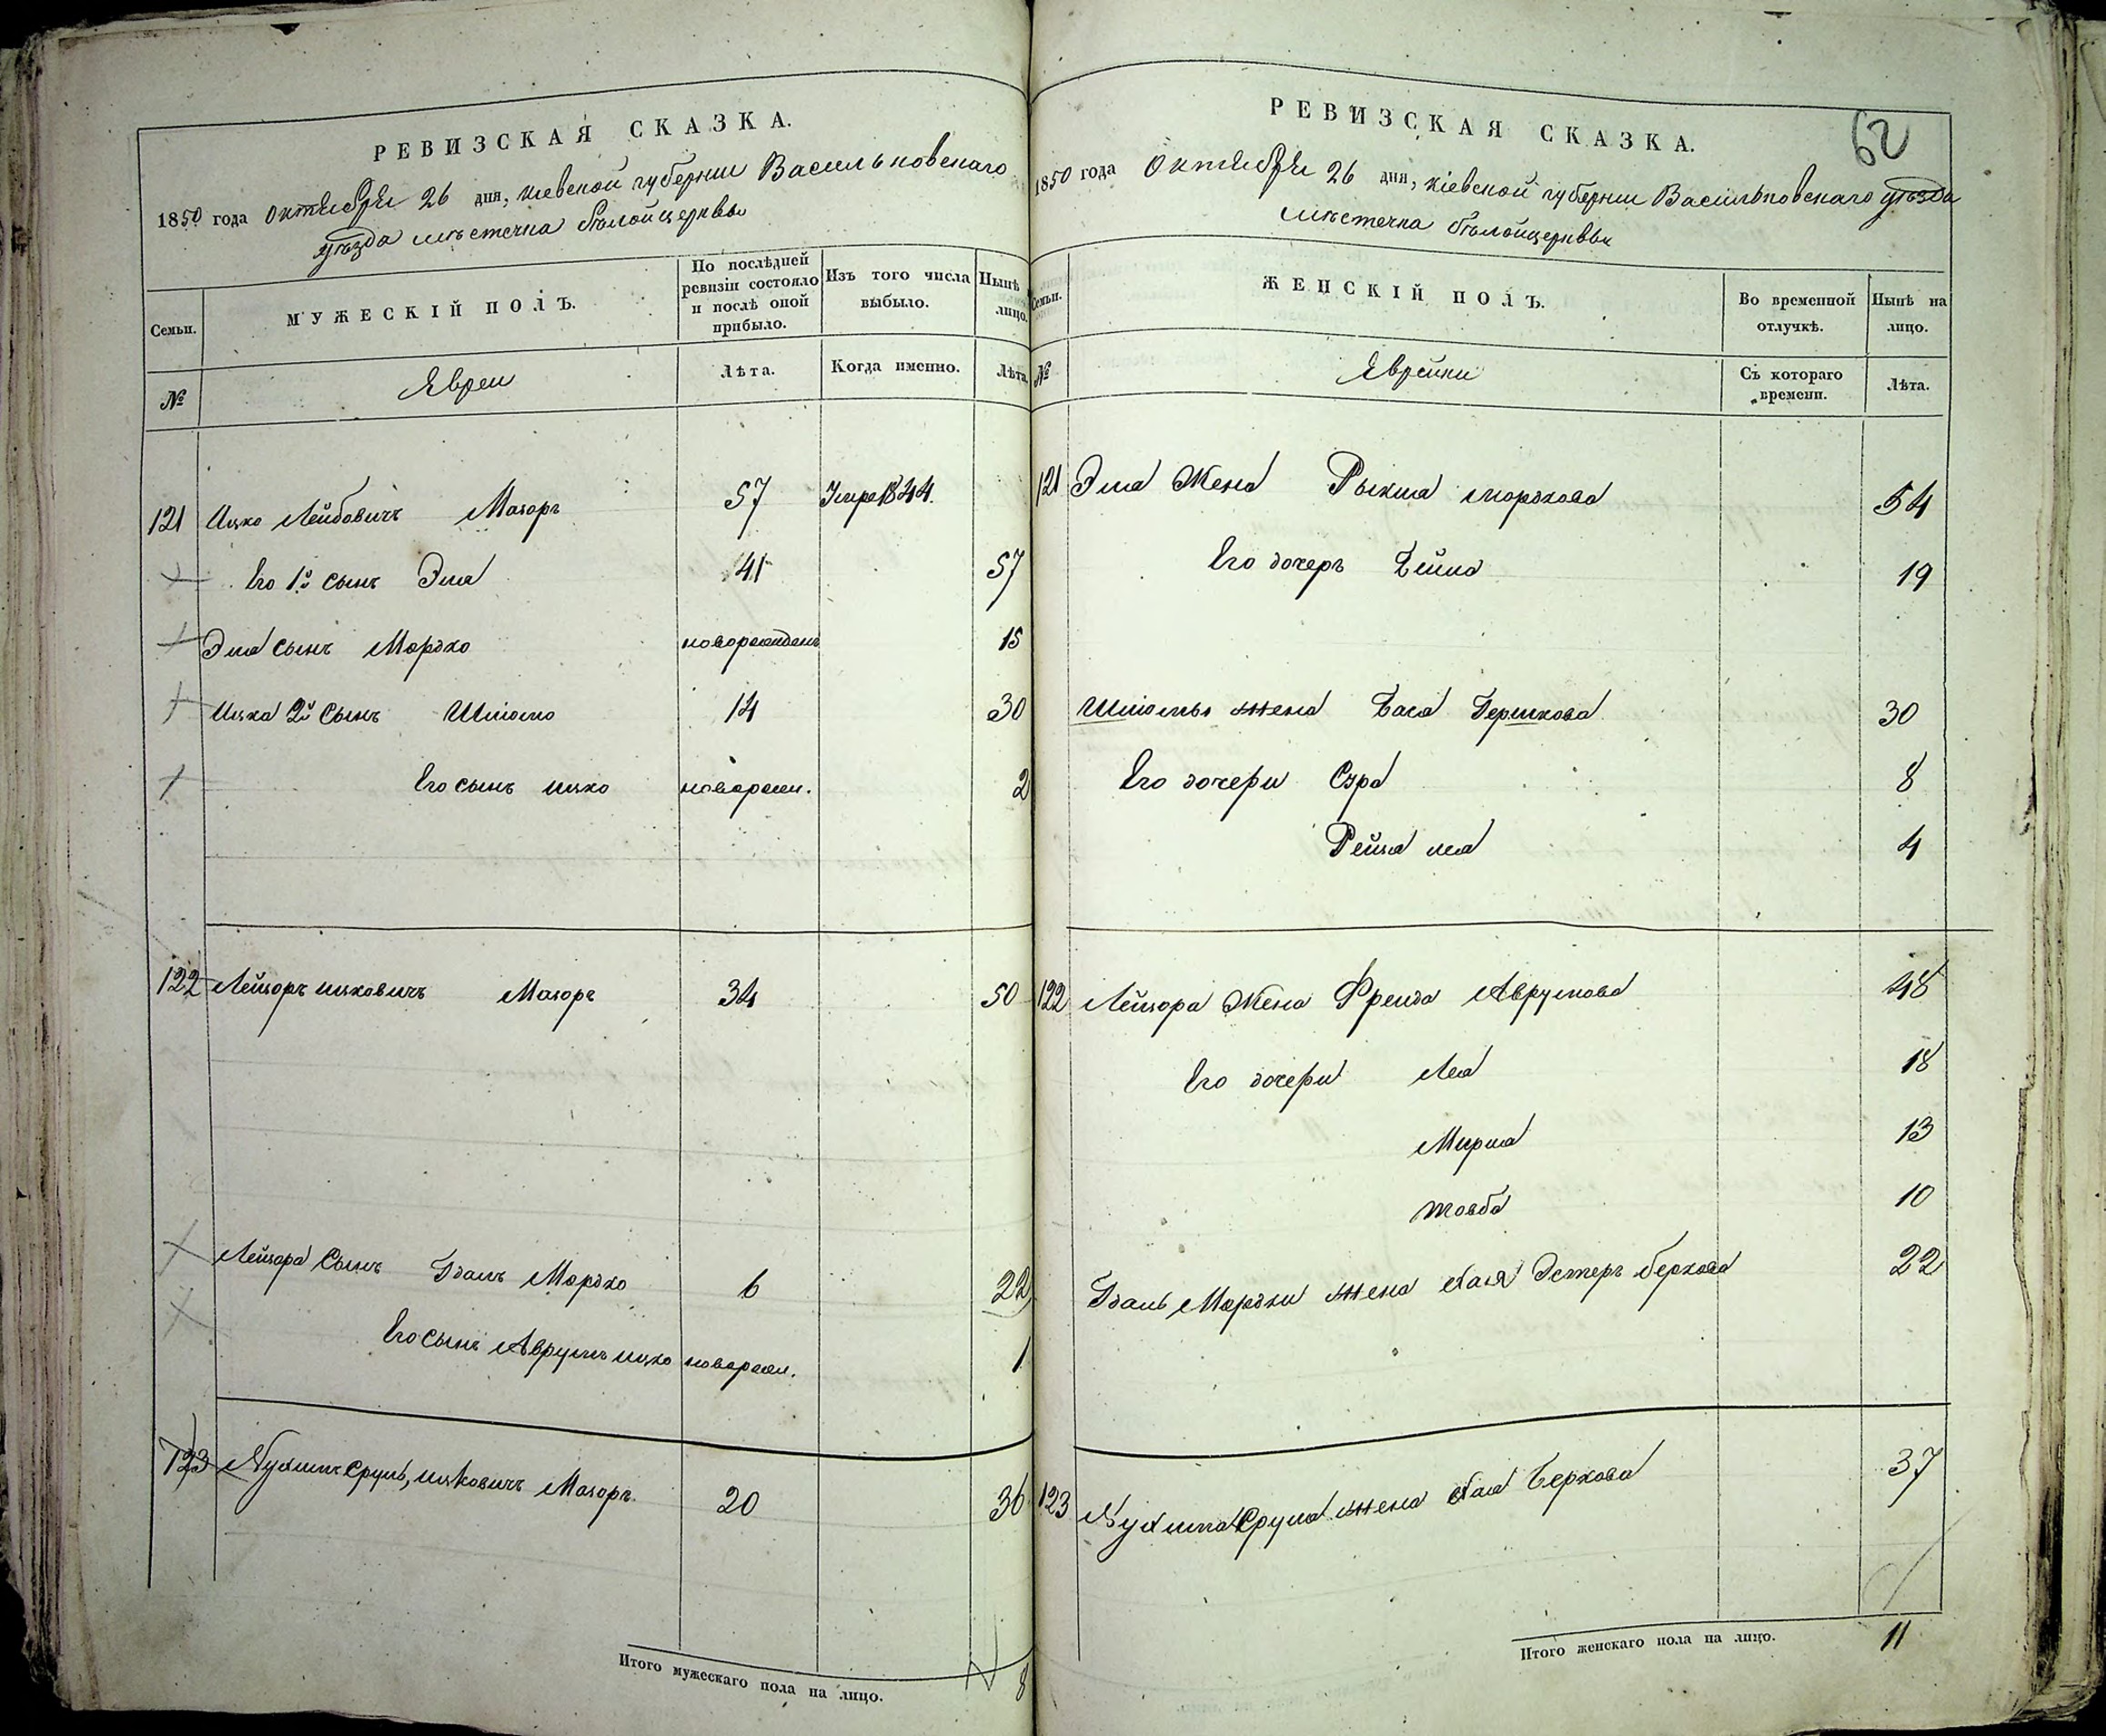 РЕВИЗСКАЯ СКАЗКА.
1850 года октября 26 дня, киевской губернии Васильковскаго
уѣзда мѣстечка бѣлойцерквы
Семьи.
МУЖЕСКІЙ ПОЛЪ.
По послѣдней ревизіи состояло и послѣ оной прибыло.
Изъ того числа выбыло.
Нынѣ лицо.
№
Евреи
Лѣта.
Когда именно.
Лѣта.
121 Ицко Лейбовичъ Мазоръ 57 Умре 1844
Его 1й сынъ Эла 41 57
Эла сынъ Мордко новорожденъ 15
Ицка 2й сынъ Шлиома 14 30
Его сынъ ицко новорож. 2
122 Лейзоръ ицковичъ Мазоръ 34 50
Лейзора сынъ Мордко 6 22
Его сынъ Аврумъ ицко новорож. 1
123 Нухимъ Сруль, ицковичъ Мазоръ 20 36
Итого мужескаго пола на лицо. 8
РЕВИЗСКАЯ СКАЗКА.
62
1850 года октября 26 дня, кіевской губернии Васильковскаго уѣзда
мѣстечка бѣлойцерквы
Семьи.
ЖЕНСКІЙ ПОЛЪ.
Во временной отлучкѣ.
Нынѣ на лицо.
№
Еврейки
Съ котораго времени.
Лѣта.
121 Эла Жена мордкова 54
Его дочеръ Бейла 19
жена Бася Гершкова 30
Его дочери Сура 8
Рейза леа 4
122 Лейзора Жена Фрейда Аврумова 48
Его дочери Леа 18
Мирла 13
товба 10
Мордки жена хая Эстеръ беркова 22
123 Нухима Сруля жена хая Беркова 37
Итого женскаго пола на лицо. 11